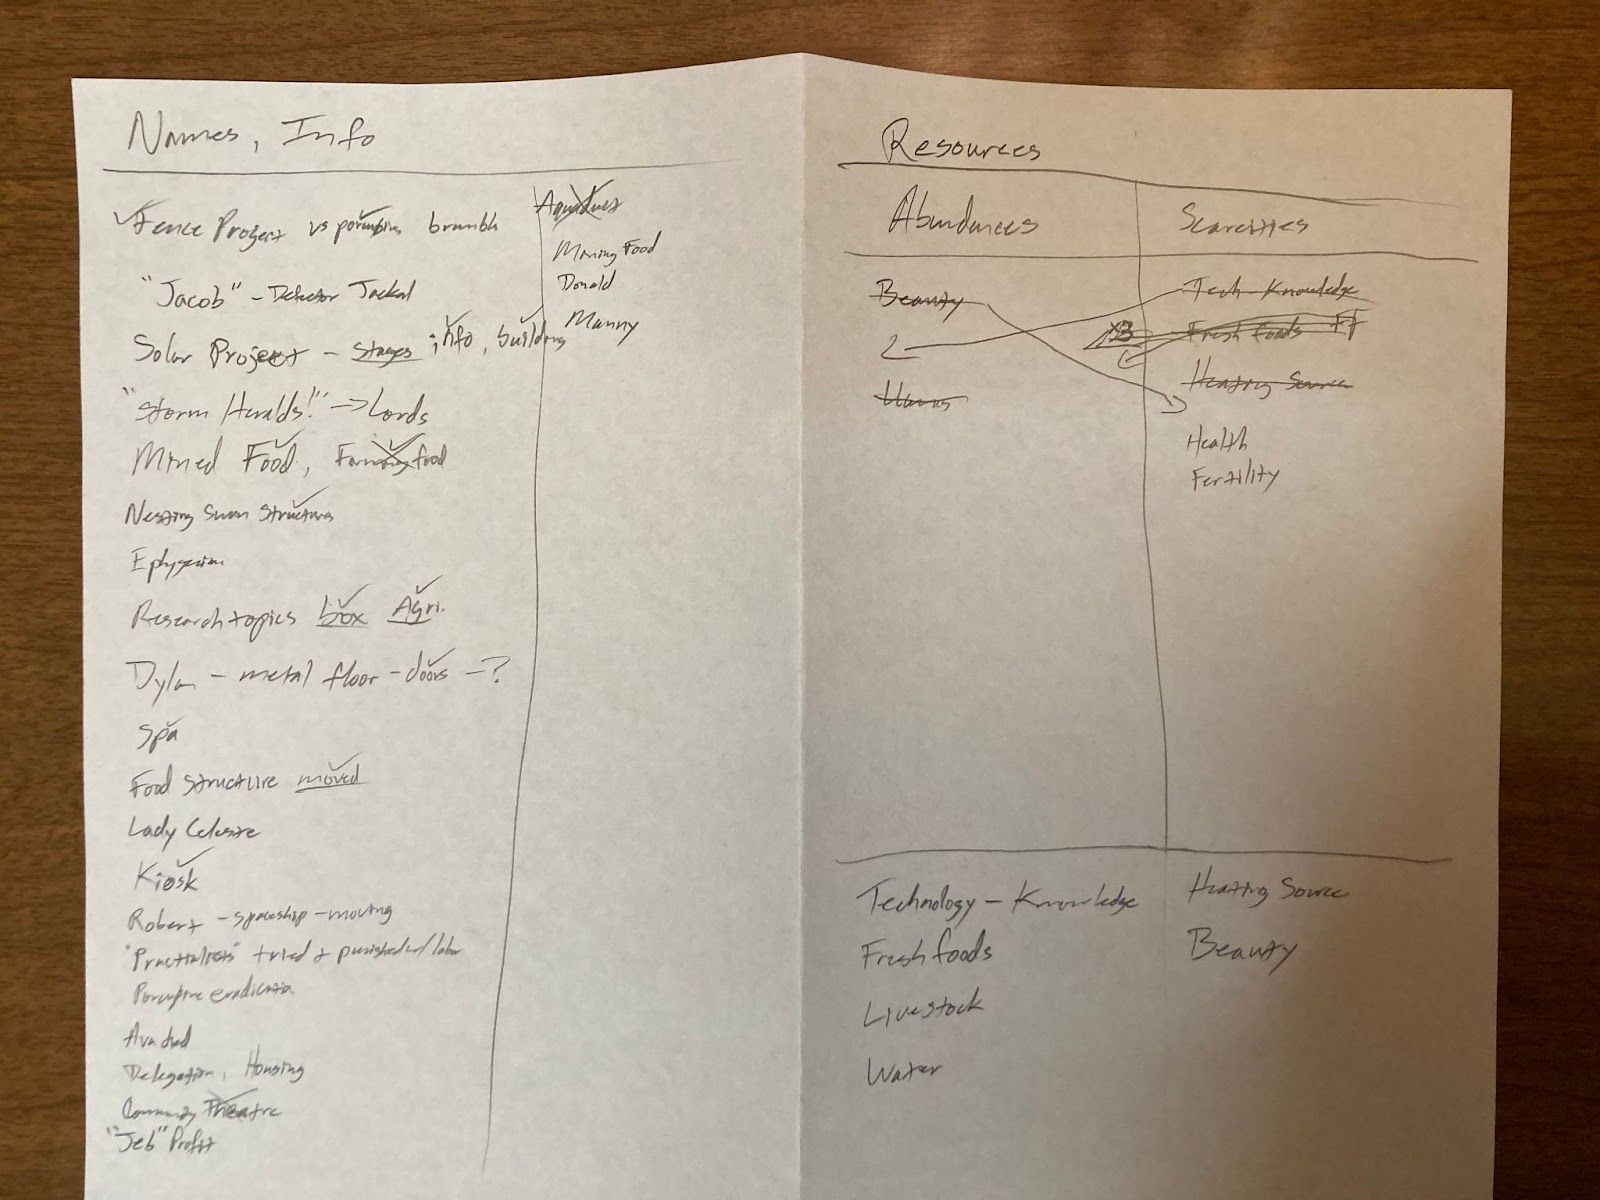 Names, Info
Fence Project vs porcupine bramble
"Jacob" - Defector Jackal
Solar Project - stages info, building
"Storm Heralds!" -> Lords
Mined Food, Farming food
Nesting Swan Structures
Research topics box Agri.
Dylan - metal floor - doors - ?
Spa
Food structure moved
Lady Celeste
Kiosk
Robert - spaceship - moving
tried + punished w/ labor
Porcupine eradication
Ava died
Delegation, Housing
Community Theatre
"Jeb" Profit
Aqueduct
Mining Food
Donald
Manny
Resources
Abundances
Beauty
2
Scarcities
Tech - Knowledge
x3
Fresh foods
Heating Source
Health
Fertility
Technology - Knowledge
Fresh foods
Livestock
Water
Heating Source
Beauty